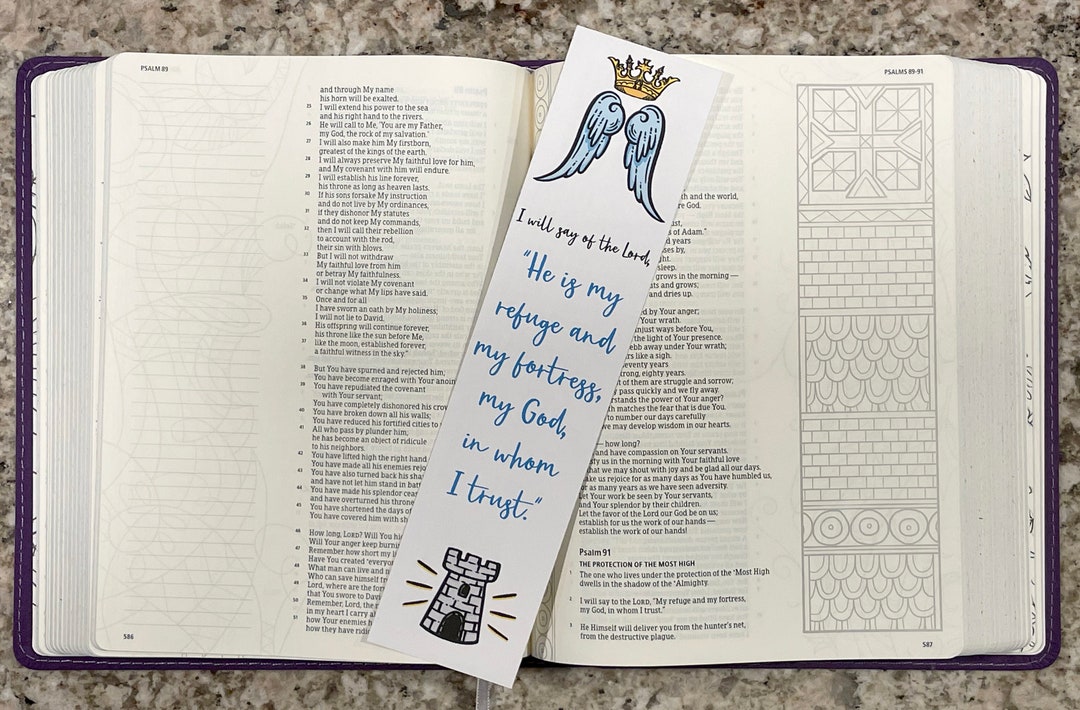 PSALM 89
and through My name
his horn will be exalted.
25 I will extend his power to the sea
and his right hand to the rivers.
26 He will call to Me, 'You are my Father,
my God, the rock of my salvation.'
27 I will also make him My firstborn,
greatest of the kings of the earth.
28 I will always preserve My faithful love for him,
and My covenant with him will endure.
29 I will establish his line forever,
his throne as long as heaven lasts.
30 If his sons forsake My instruction
and do not live by My ordinances,
31 if they dishonor My statutes
and do not keep My commands,
32 then I will call their rebellion
to account with the rod,
their sin with blows.
33 But I will not withdraw
My faithful love from him
or betray My faithfulness.
34 I will not violate My covenant
or change what My lips have said.
35 Once and for all
I have sworn an oath by My holiness;
I will not lie to David.
36 His offspring will continue forever,
his throne like the sun before Me,
37 like the moon, established forever,
a faithful witness in the sky."
38 But You have spurned and rejected him;
You have become enraged with Your
39 You have repudiated the covenant
with Your servant;
You have completely dishonored his
40 You have broken down all his walls;
You have reduced his fortified cities to
41 All who pass by plunder him;
he has become an object of ridicule
to his neighbors.
42 You have lifted high the right hand
You have made all his enemies
43 You have also turned back his
and have not let him stand in
44 You have made his splendor
and have overturned his throne
45 You have shortened the days
You have covered him with
46 How long, LORD? Will You
Will Your anger keep
47 Remember how short my
Have You created
48 What man can live and
Who can save himself
49 Lord, where are the
that You swore to
50 Remember, Lord, the
in my heart I carry
51 how Your enemies
how they have
586
I will say of the Lord,
"He is my
refuge and
my fortress,
my God,
in whom
I trust."
PSALMS 89-91
and the world,
God.
of Adam."
years
by,
sleep.
grows in the morning —
and grows;
and dries up.
by Your anger;
Your wrath.
ways before You,
the light of Your presence.
away under Your wrath;
like a sigh.
seventy years
eighty years.
of them are struggle and sorrow;
pass quickly and we fly away.
the power of Your anger?
matches the fear that is due You.
to number our days carefully
we may develop wisdom in our hearts.
— how long?
and have compassion on Your servants.
us in the morning with Your faithful love
that we may shout with joy and be glad all our days.
us rejoice for as many days as You have humbled us,
for as many years as we have seen adversity.
Let Your work be seen by Your servants,
and Your splendor by their children.
Let the favor of the Lord our God be on us;
establish for us the work of our hands —
establish the work of our hands!
Psalm 91
THE PROTECTION OF THE MOST HIGH
1 The one who lives under the protection of the Most High
dwells in the shadow of the Almighty.
2 I will say to the LORD, "My refuge and my fortress,
my God, in whom I trust."
3 He Himself will deliver you from the hunter's net,
from the destructive plague.
587